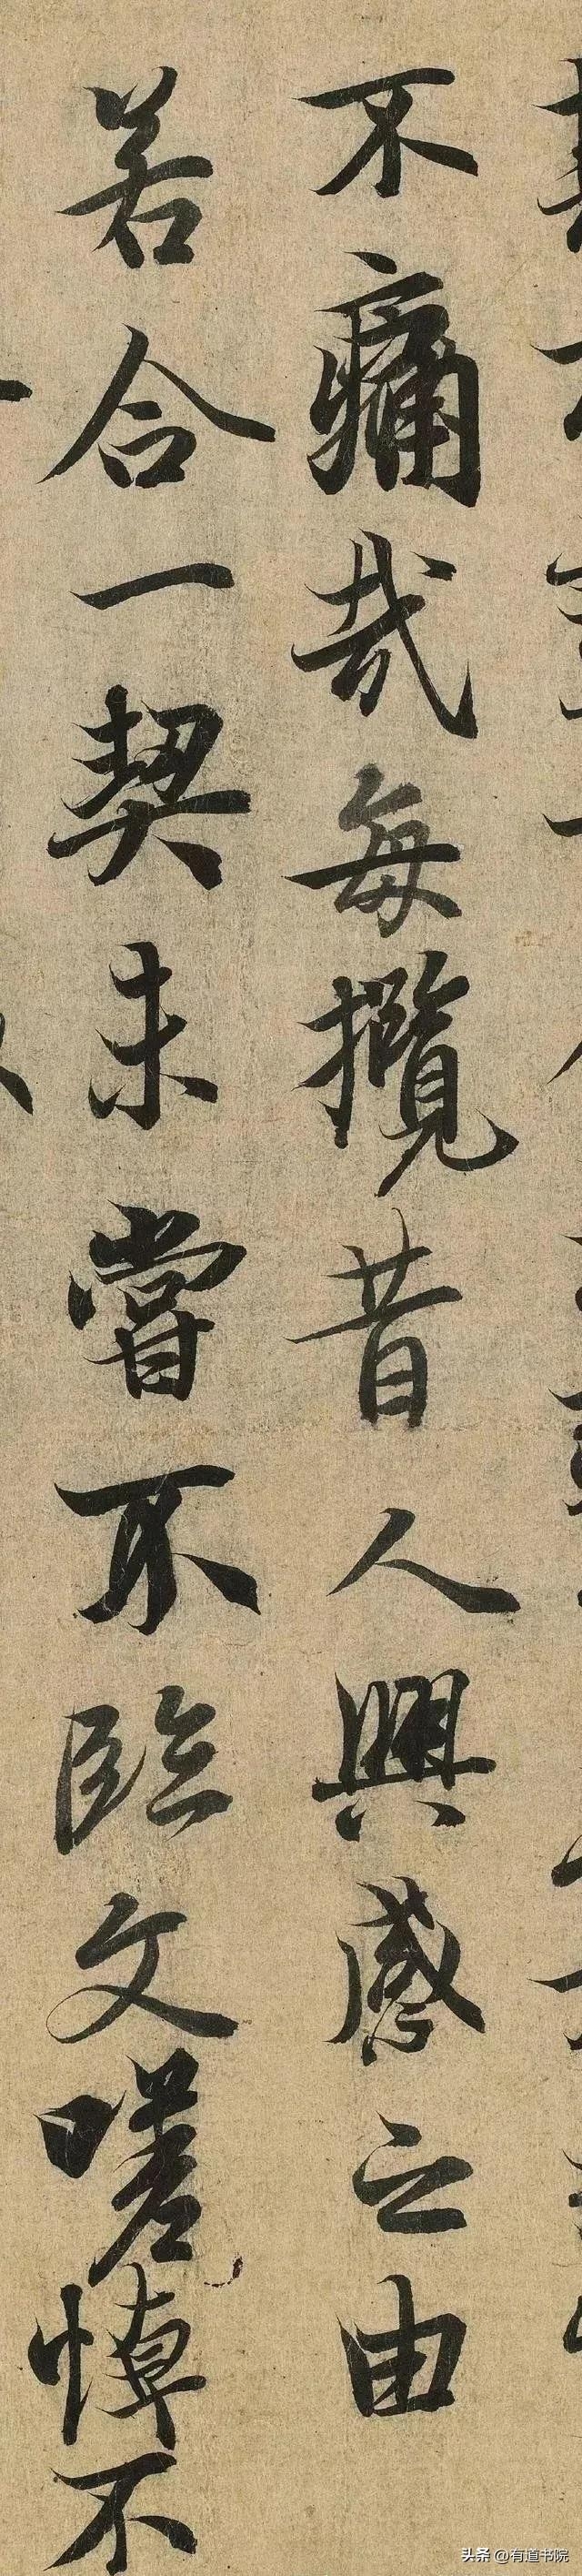 不痛哉每攬昔人興感之由
若合一契未嘗不臨文嗟悼不
头条 @有道书院